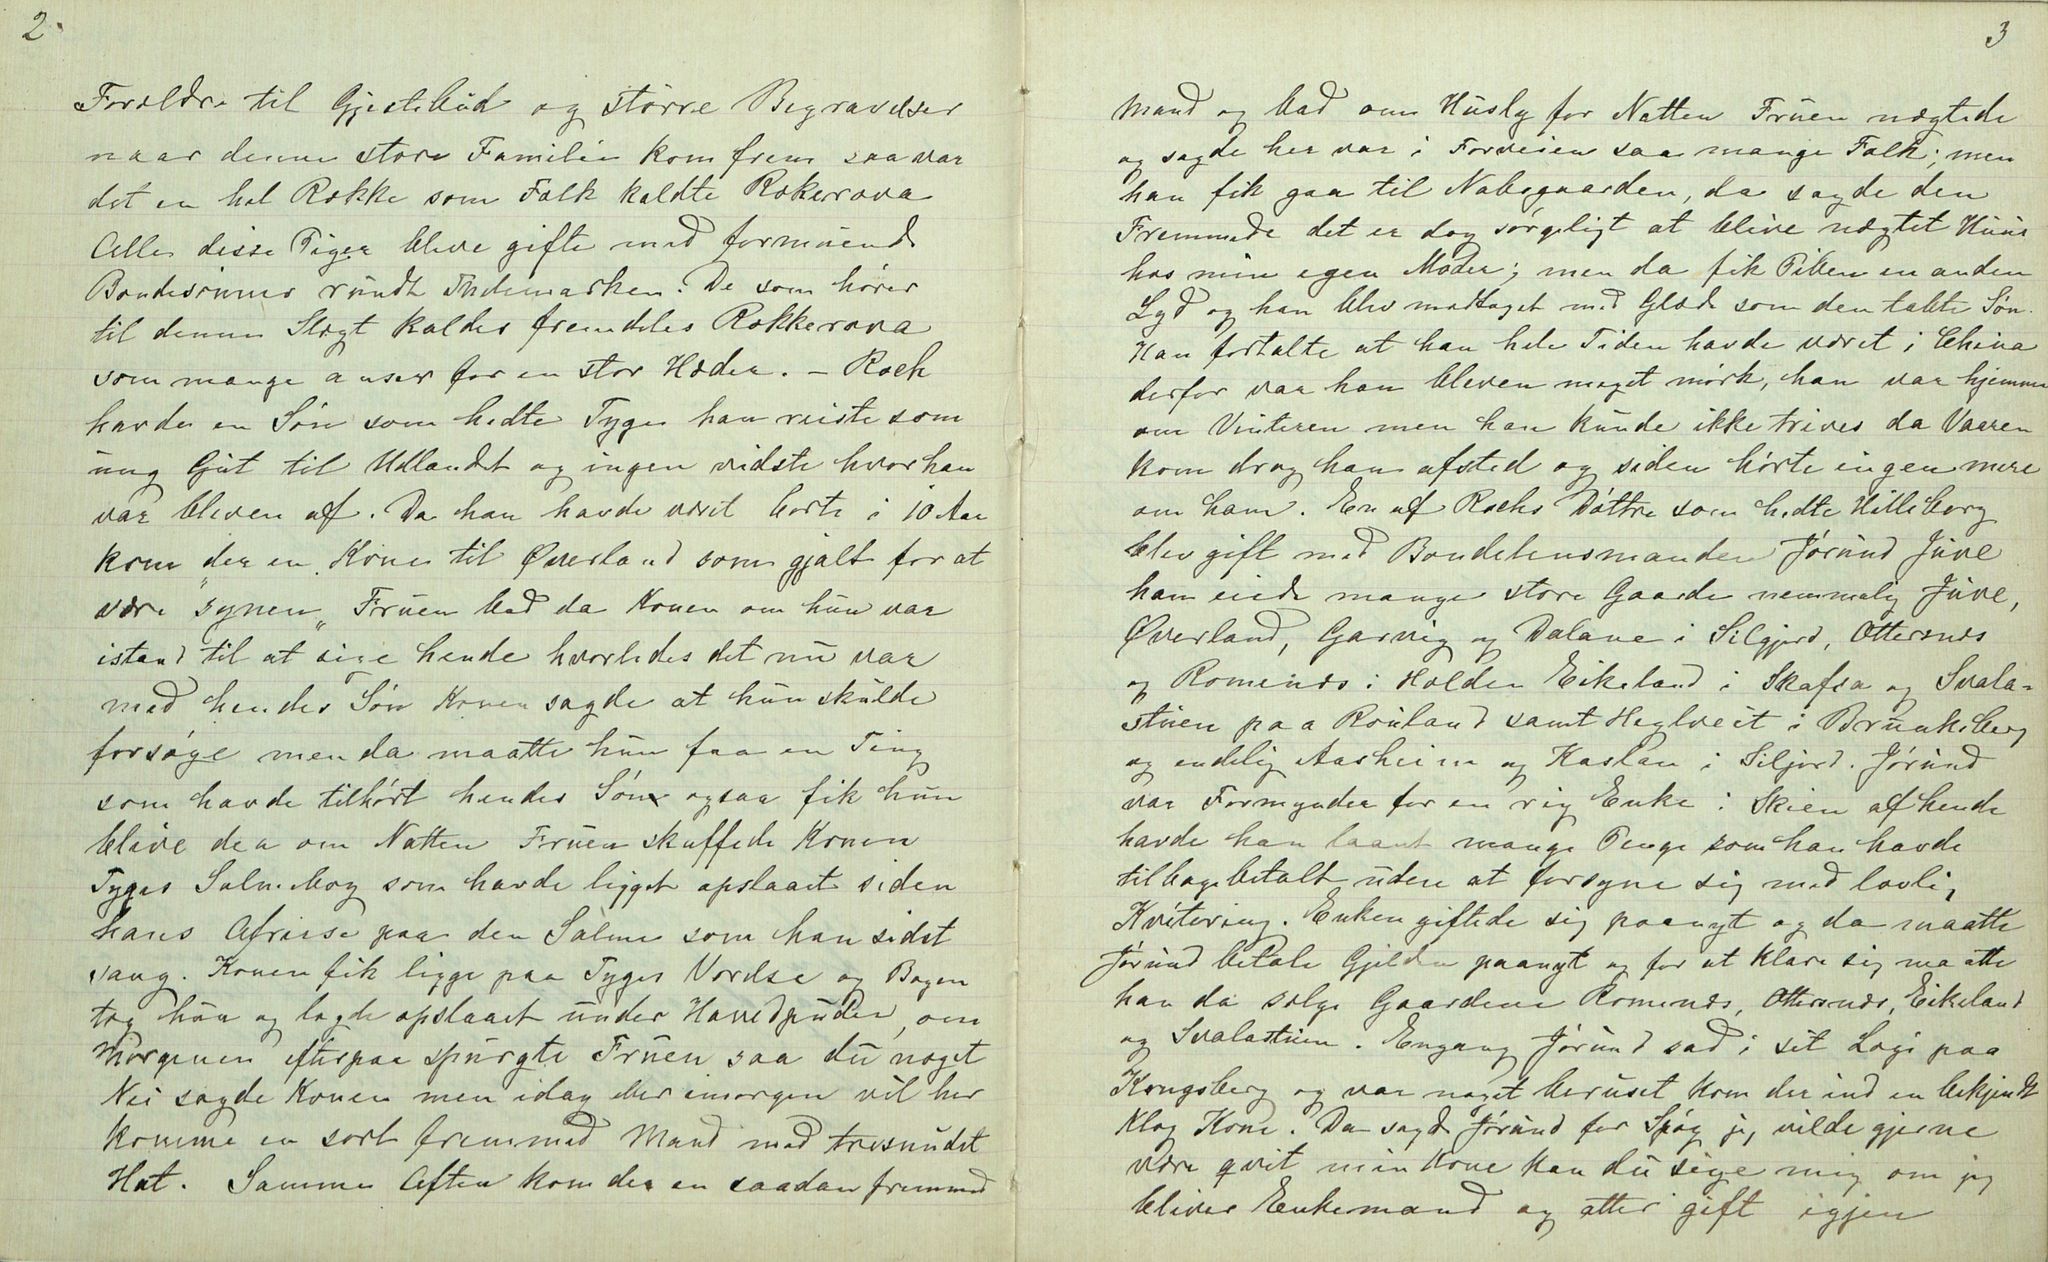 2.
Forældre til Gjestebud og större Begravelser
naar denne store Familie kom frem saa var
det en hel Række som Folk kaldte Rokkerova
Alle disse Piger bleve gifte med formuende
Bondesönner rundt Thelemarken. De som hörer
til denne Slægt kaldes fremdeles Rokkerova
som mange anser for en stor Hæder. – Roch
havde en Sön som hedte Tyge han reiste som
ung Gut til Udlandet og ingen vidste hvor han
var bleven af. Da han havde været borte i 10 Aar
kom der en Kone til Øverland som gjalt for at
være "synen„ Fruen bad da Konen om hun var
istand til at sige hende hvorledes det nu var
med hendes Sön Konen sagde at hun skulde
forsöge men da maatte hun faa en Ting
som havde tilhört hendes Sön ogsaa fik hun
blive der om Natten Fruen skaffede Konen
Tyges Salmebog som havde ligget opslaaet siden
hans Afreise paa den Salme som han sidst
sang. Konen fik ligge paa Tyges Vordse og Bogen
tog hun og lagde opslaaet under Hovedpuden, om
Morgenen efterpaa spurgte Fruen saa du noget
Nei sagde Konen men idag eller imorgen vil her
komme en sort fremmed Mand med tresnudet
Hat. Samme Aften kom der en saadan fremmed
3
Mand og bad om Husly for Natten Fruen nægtede
og sagde her var i Forveien saa mange Folk; men
han fik gaa til Nabogaarden, da sagde den
Fremmede det er dog sörgeligt at blive nægtet Huus
hos min egen Moder; men da fik Piben en anden
Lyd og han blev modtaget med Glæde som den tabte Sön.
Han fortalte at han hele Tiden havde været i China
derfor var han bleven meget mörk, han var hjemme
om Vinteren men han kunde ikke trives da Vaaren
kom drog han afsted og siden hörte ingen mere
om ham. En af Rochs Döttre som hedte Hilleborg
blev gift med Bondelensmanden Jörund Juve
han eiede mange store Gaarde nemmelig Juve,
Øverland, Garvig og Dalane i Silgjord, Ottersnes
og Romenæs i Holden Eikeland i Skafsa og Svala-
stuen paa Rauland samt Heglveit i Brunkeberg
og endelig Aasheim og Kaslan i Siljord. Jörund
var Formynder for en rig Enke i Skien af hende
havde han laant mange Penge som han havde
tilbagebetalt uden at forsyne sig med lovlig
Kvitering. Enken giftede sig paanyt og da maatte
Jörund betale Gjelden paanyt og for at klare sig maatte
han da sælge Gaardene Romenæs, Ottersnæs, Eikeland
og Svalastuen. Engang Jörund sad i sit Logi paa
Kongsberg og var noget beruset kom der ind en bekjendt
klog Kone. Da sagde Jörund for Spög jeg vilde gjerne
være qvit min Kone kan du sige mig om jeg
bliver Enkemand og atter gift igjen